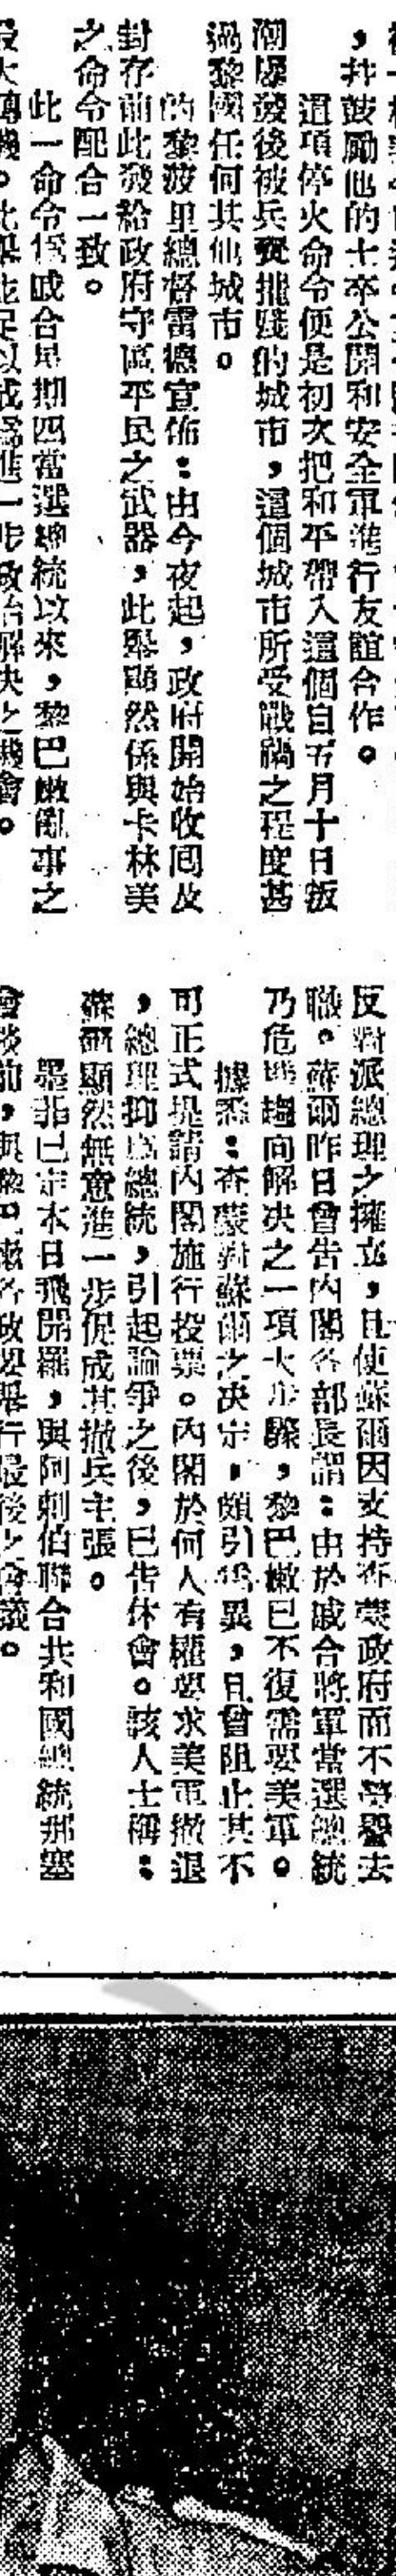 ，并鼓勵他的士卒公開和安全軍進行友誼合作。
這項停火命令便是初次把和平帶入這個自五月十日叛
潮爆發後被兵燹摧踐的城市，這個城市所受戰禍之程度甚
過黎國任何其他城市。
的黎波里總督雷德宣佈：由今夜起，政府開始收回及
封存前此發給政府守區平民之武器，此舉顯然係與卡林美
之命令配合一致。
此一命令爲戚合星期四當選總統以來，黎巴嫩亂事之
最大轉機。此舉也足以成爲進一步政治解決之機會。
反對派總理之擁立，且使蘇爾因支持查蒙政府而不榮譽去
職。蘇爾昨日曾告內閣各部長謂：由於戚合將軍當選總統
乃危機趨向解决之一項大步驟，黎巴嫩已不復需要美軍。
據悉：查蒙對蘇爾之決定，頗引爲異，且曾阻止其不
可正式提請內閣施行投票。內閣於何人有權要求美軍撤退
，總理抑爲總統，引起論爭之後，已告休會。該人士稱：
蘇爾顯然無意進一步促成其撤兵主張。
墨非已定本日飛開羅，與阿剌伯聯合共和國總統那塞
會談前，與黎巴嫩各政要舉行最後之會議。